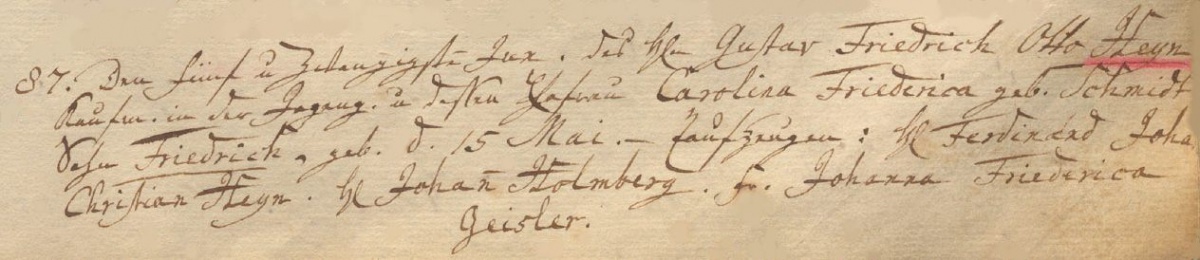 87. Den fünf u Zwanzigste Jun. des H͞n Gustav Friedrich Otto Heyn
Kaufm. in der u dessen Ehefrau Carolina Friederica geb. Schmidt
Sohn Friedrich, geb. d. 15 Mai. – Taufzeugen: H Ferdinand Joha
Christian Heyn. H Johan̄ Holmberg. Fr. Johanna Friederica
Geisler.